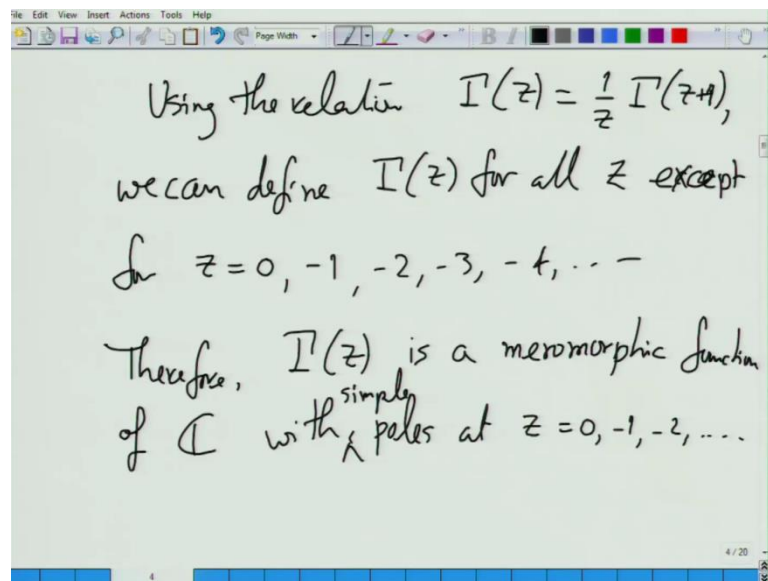 File Edit View Insert Actions Tools Help
Page Width
Using the relation Γ(z) = 1/z Γ(z+1),
we can define Γ(z) for all z except
for z = 0, -1, -2, -3, -4, ...
Therefore, Γ(z) is a meromorphic function
of ℂ with simple poles at z = 0, -1, -2, ....
4 / 20
4